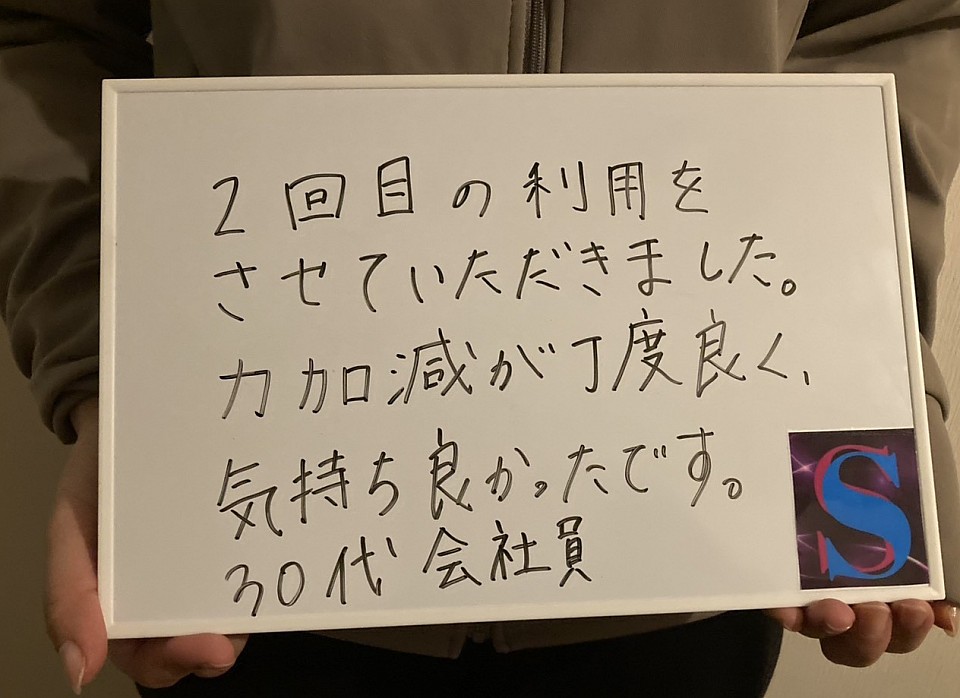 2回目の利用を
させていただきました。
力加減が丁度良く、
気持ち良かったです。
30代 会社員
S